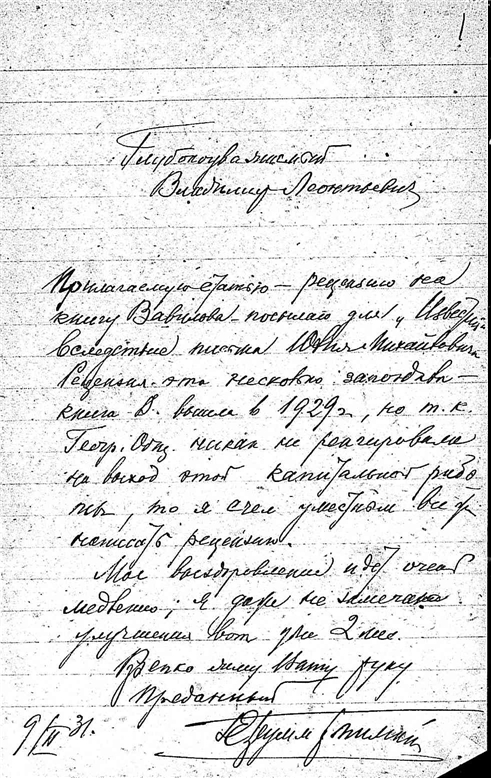 1
Глубокоуважаемый
Владимир Леонтьевич,
Прилагаемую статью — рецензию на
книгу Вавилова — посылаю для „Известий"
вследствие письма Юлия Михайловича.
Рецензия эта несколько запоздала —
книга В. вышла в 1929 г., но т.к.
Геогр. Общ. никак не реагировало
на выход этой капитальной рабо-
ты, то я счел уместным все же
написать рецензию.
Мое выздоровление идет очень
медленно; я даже не замечаю
улучшения вот уже 2 мес.
Крепко жму Вашу руку
Преданный
9/II 31.